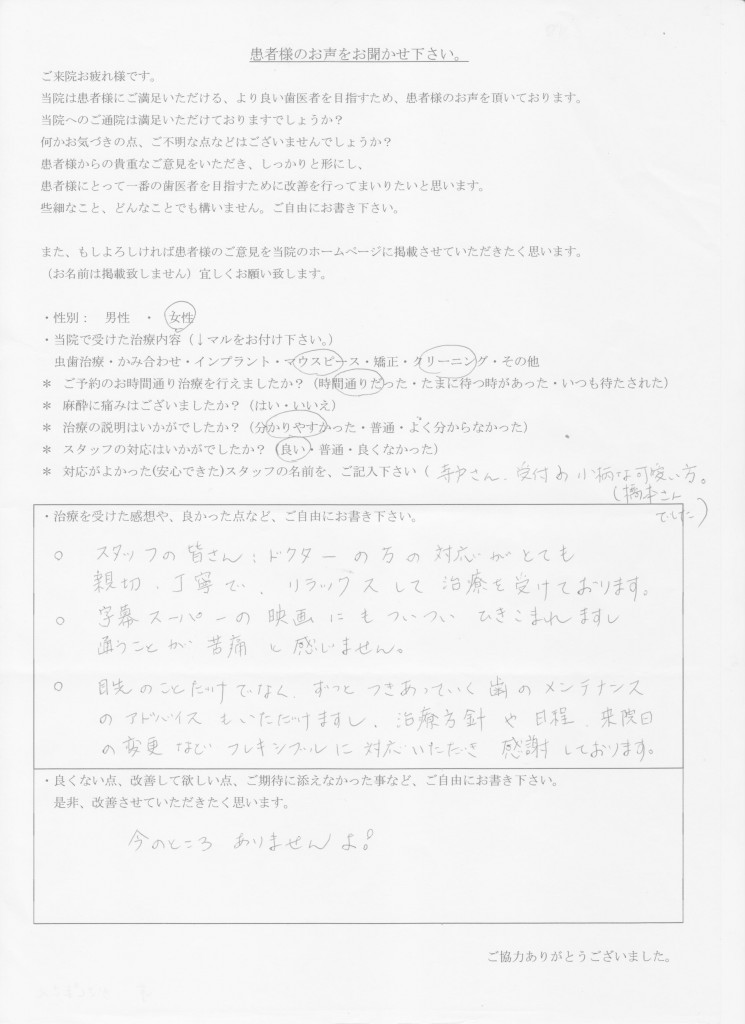 患者様のお声をお聞かせ下さい。
ご来院お疲れ様です。
当院は患者様にご満足いただける、より良い歯医者を目指すため、患者様のお声を頂いております。
当院へのご通院は満足いただけておりますでしょうか？
何かお気づきの点、ご不明な点などはございませんでしょうか？
患者様からの貴重なご意見をいただき、しっかりと形にし、
患者様にとって一番の歯医者を目指すために改善を行ってまいりたいと思います。
些細なこと、どんなことでも構いません。ご自由にお書き下さい。
また、もしよろしければ患者様のご意見を当院のホームページに掲載させていただきたく思います。
（お名前は掲載致しません）宜しくお願い致します。
・性別： 男性 ・ 女性
・当院で受けた治療内容（↓マルをお付け下さい。）
虫歯治療・かみ合わせ・インプラント・マウスピース・矯正・クリーニング・その他
＊ ご予約のお時間通り治療を行えましたか？（時間通りだった・たまに待つ時があった・いつも待たされた）
＊ 麻酔に痛みはございましたか？（はい・いいえ）
＊ 治療の説明はいかがでしたか？（分かりやすかった・普通・よく分からなかった）
＊ スタッフの対応はいかがでしたか？（良い・普通・良くなかった）
＊ 対応がよかった(安心できた)スタッフの名前を、ご記入下さい（ さん、受付の小柄な可愛い方。
（橋本さん
でした）
・治療を受けた感想や、良かった点など、ご自由にお書き下さい。
○ スタッフの皆さん；ドクターの方の対応がとても
親切、丁寧で、リラックスして治療を受けております。
○ 字幕スーパーの映画にもついついひきこまれますし
通うことが苦痛と感じません。
○ 目先のことだけでなく、ずっとつきあっていく歯のメンテナンス
のアドバイスもいただけますし、治療方針や日程、来院日
の変更などフレキシブルに対応いただき感謝しております。
・良くない点、改善して欲しい点、ご期待に添えなかった事など、ご自由にお書き下さい。
是非、改善させていただきたく思います。
今のところ ありませんよ！
ご協力ありがとうございました。